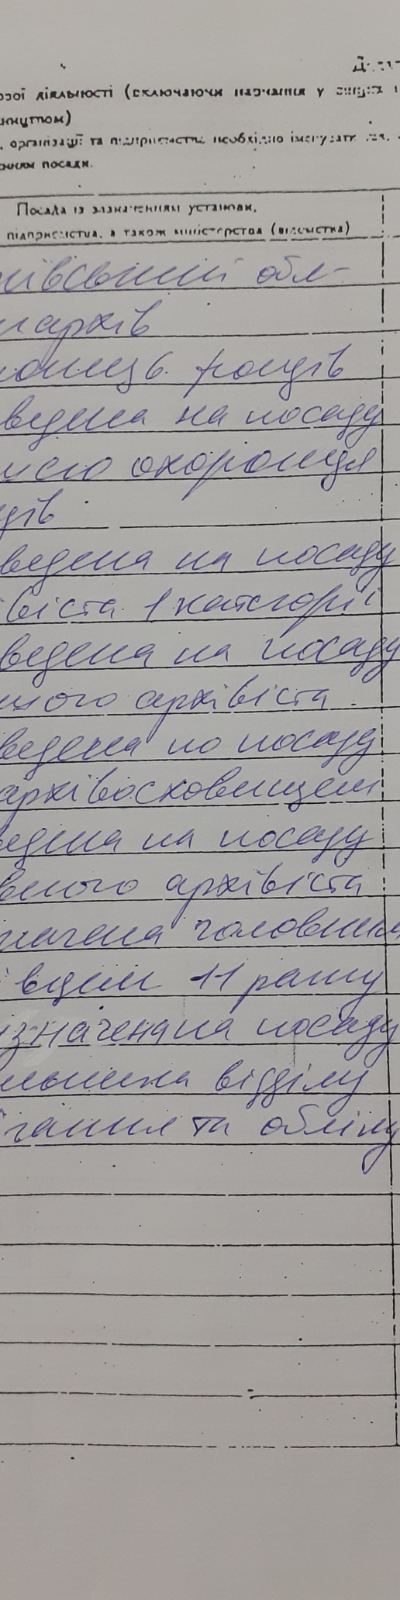 ової діяльності (включаючи навчання у вищих
организації та підприємства необхідно іменувати
ням посади.
Посада із зазначенням установи,
підприємства, а також міністерства (відомства)
ківський обл-
архів
фондів
ведена на посаду
охоронця
дів
ведена на посаду
івіста 1 категорії
ведена на посаду
ного архівіста
ведена на посаду
архівосховищем
едена на посаду
вного архівіста
начена головним
11 рангу
изначена на посаду
льника відділу
гання та обліку